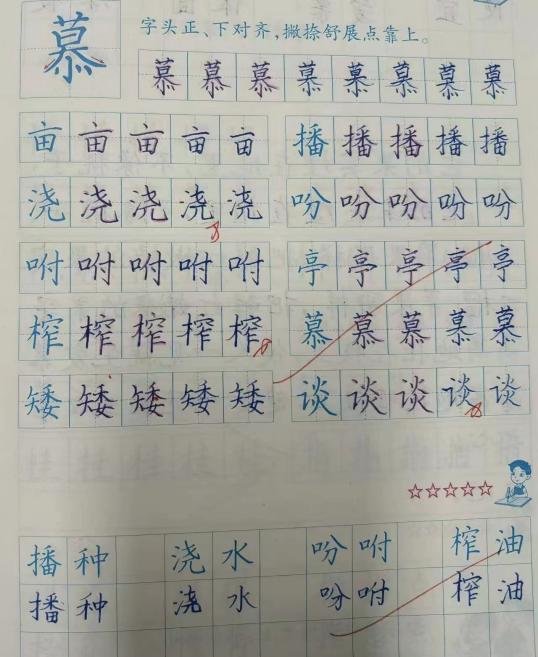 慕
字头正、下对齐，撇捺舒展点靠上。
慕慕慕慕慕慕慕慕
亩亩亩亩亩 播播播播播
浇浇浇浇浇 吩吩吩吩吩
咐咐咐咐咐 亭亭亭亭亭
榨榨榨榨榨 慕慕慕慕慕
矮矮矮矮矮 谈谈谈谈谈
播种 浇水 吩咐 榨油
播种 浇水 吩咐 榨油